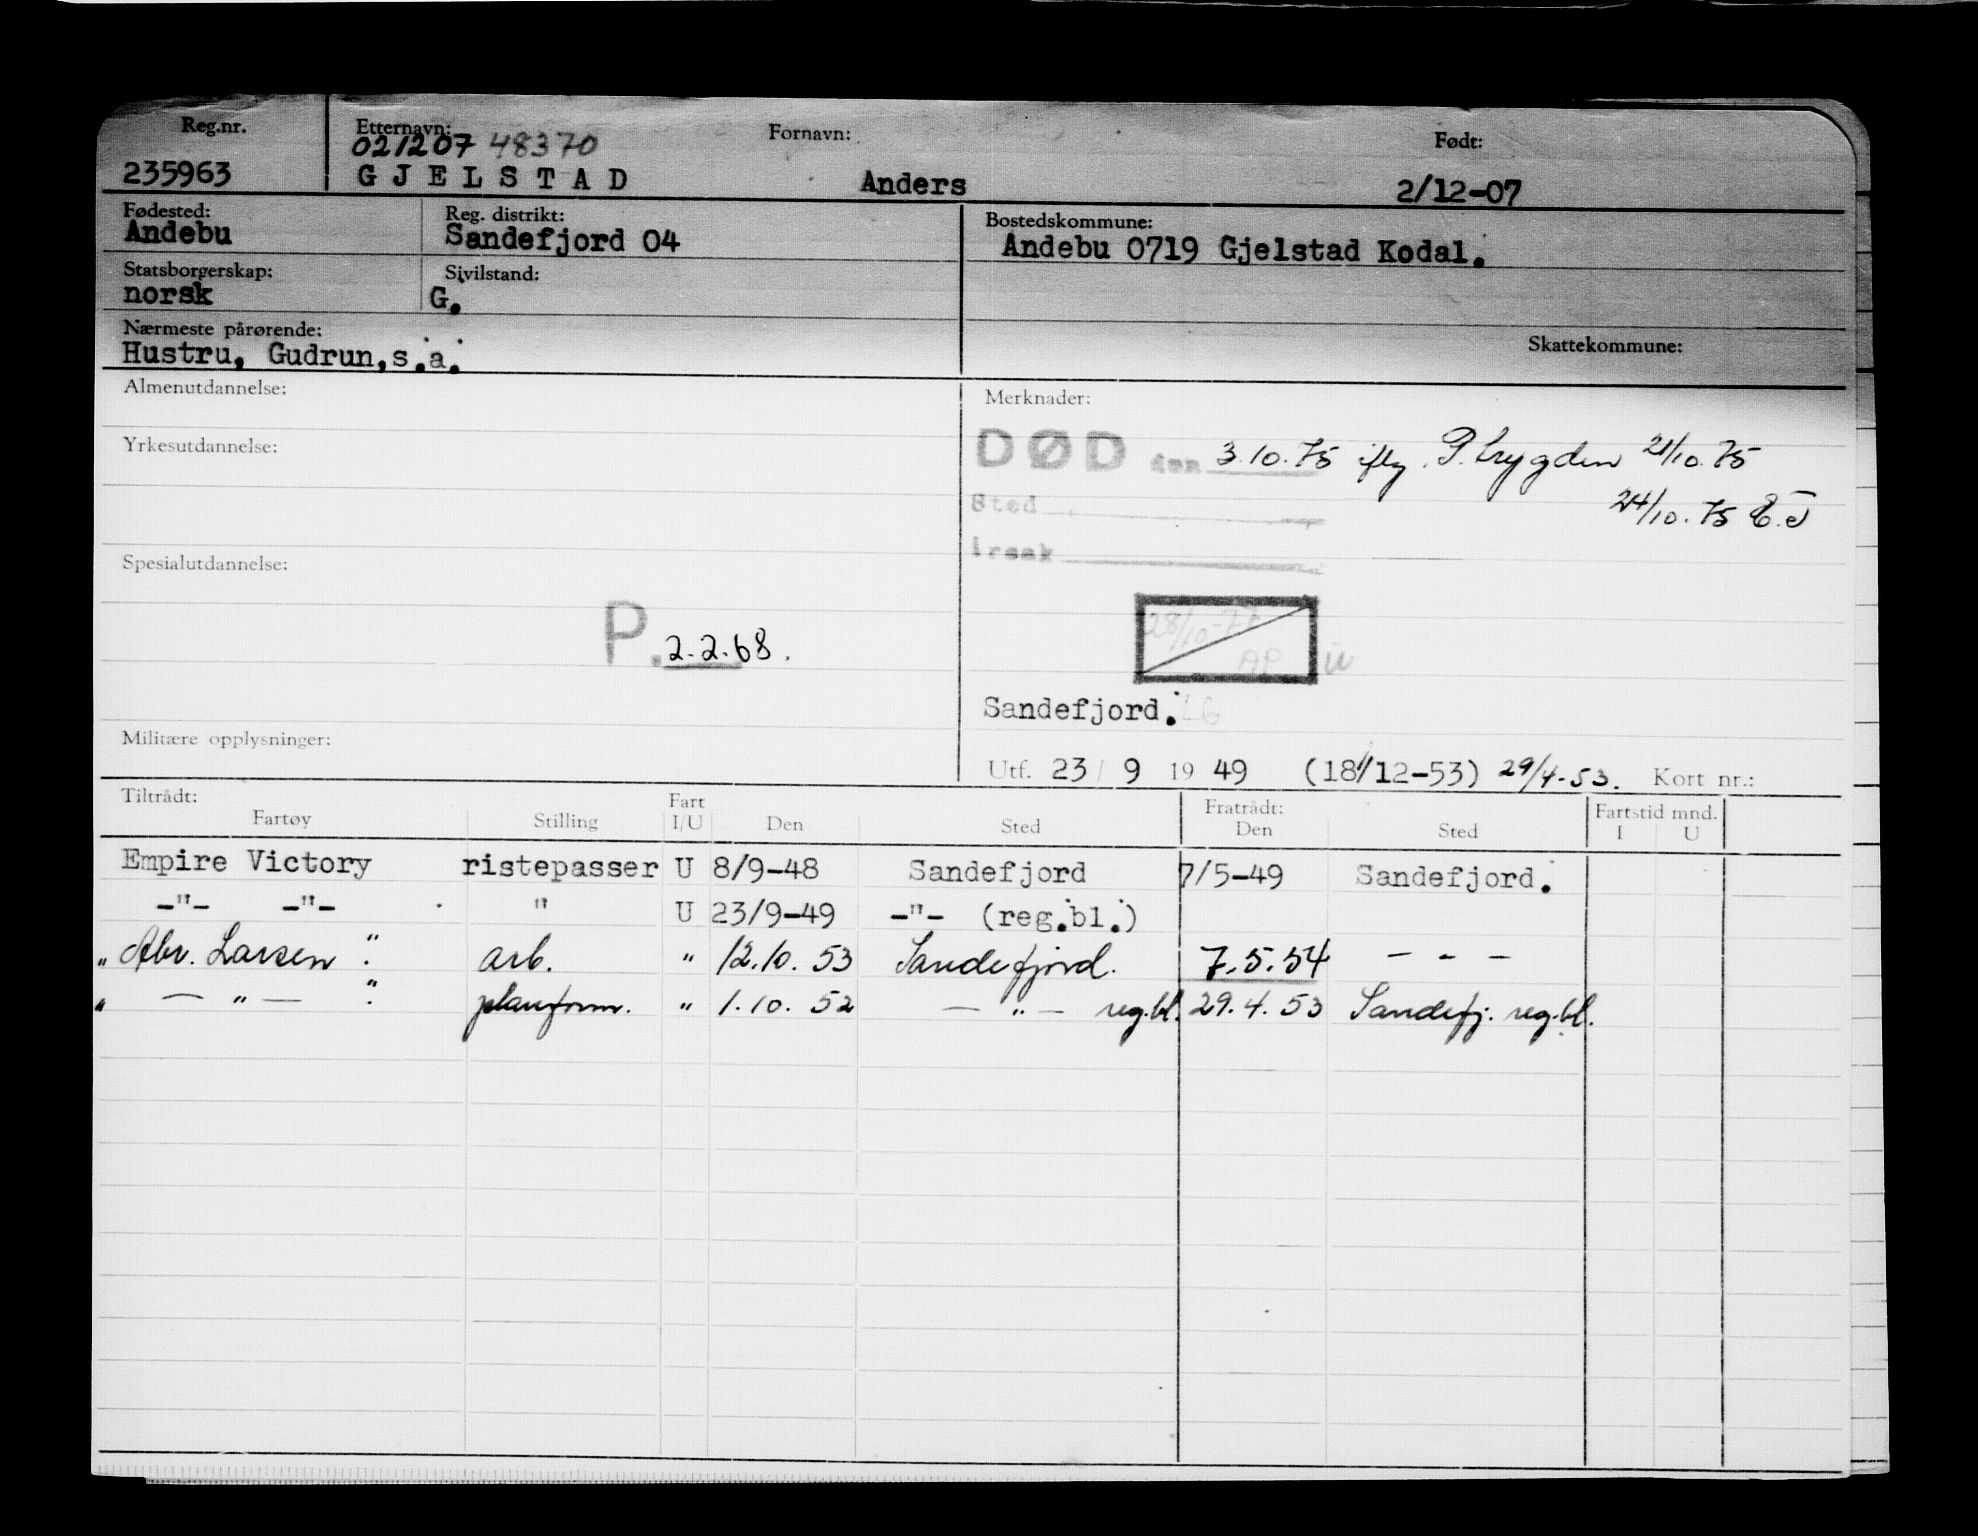 Reg.nr. Etternavn: Fornavn: Født:
021207 48370
235963 GJELSTAD Anders 2/12-07
Fødested: Reg. distrikt: Bostedskommune:
Andebu Sandefjord 04 Andebu 0719 Gjelstad Kodal.
Statsborgerskap: Sivilstand:
norsk G.
Nærmeste pårørende: Skattekommune:
Hustru, Gudrun,s.a.
Almenutdannelse: Merknader:
Yrkesutdannelse:
DØD den 3.10.75 iflg. P.trygden 21/10.75
Sted 24/10.75
Spesialutdannelse:
P. 2.2.68.
28/10-77
AP
Sandefjord.
Militære opplysninger:
Utf. 23/ 9 19 49 (18/12-53) 29/4-53. Kort nr.:
Tiltrådt: Fart Fratrådt: Fartstid mnd.
Fartøy Stilling I/U Den Sted Den Sted I U
Empire Victory ristepasser U 8/9-48 Sandefjord 7/5-49 Sandefjord.
-"- -"- " U 23/9-49 -"- (reg.bl.)
" Abr. Larsen " arb. " 12.10.53 Sandefjord. 7.5.54 - - -
" — " — " planform. " 1.10.52 — " — reg.bl. 29.4.53 Sandefj. reg.bl.